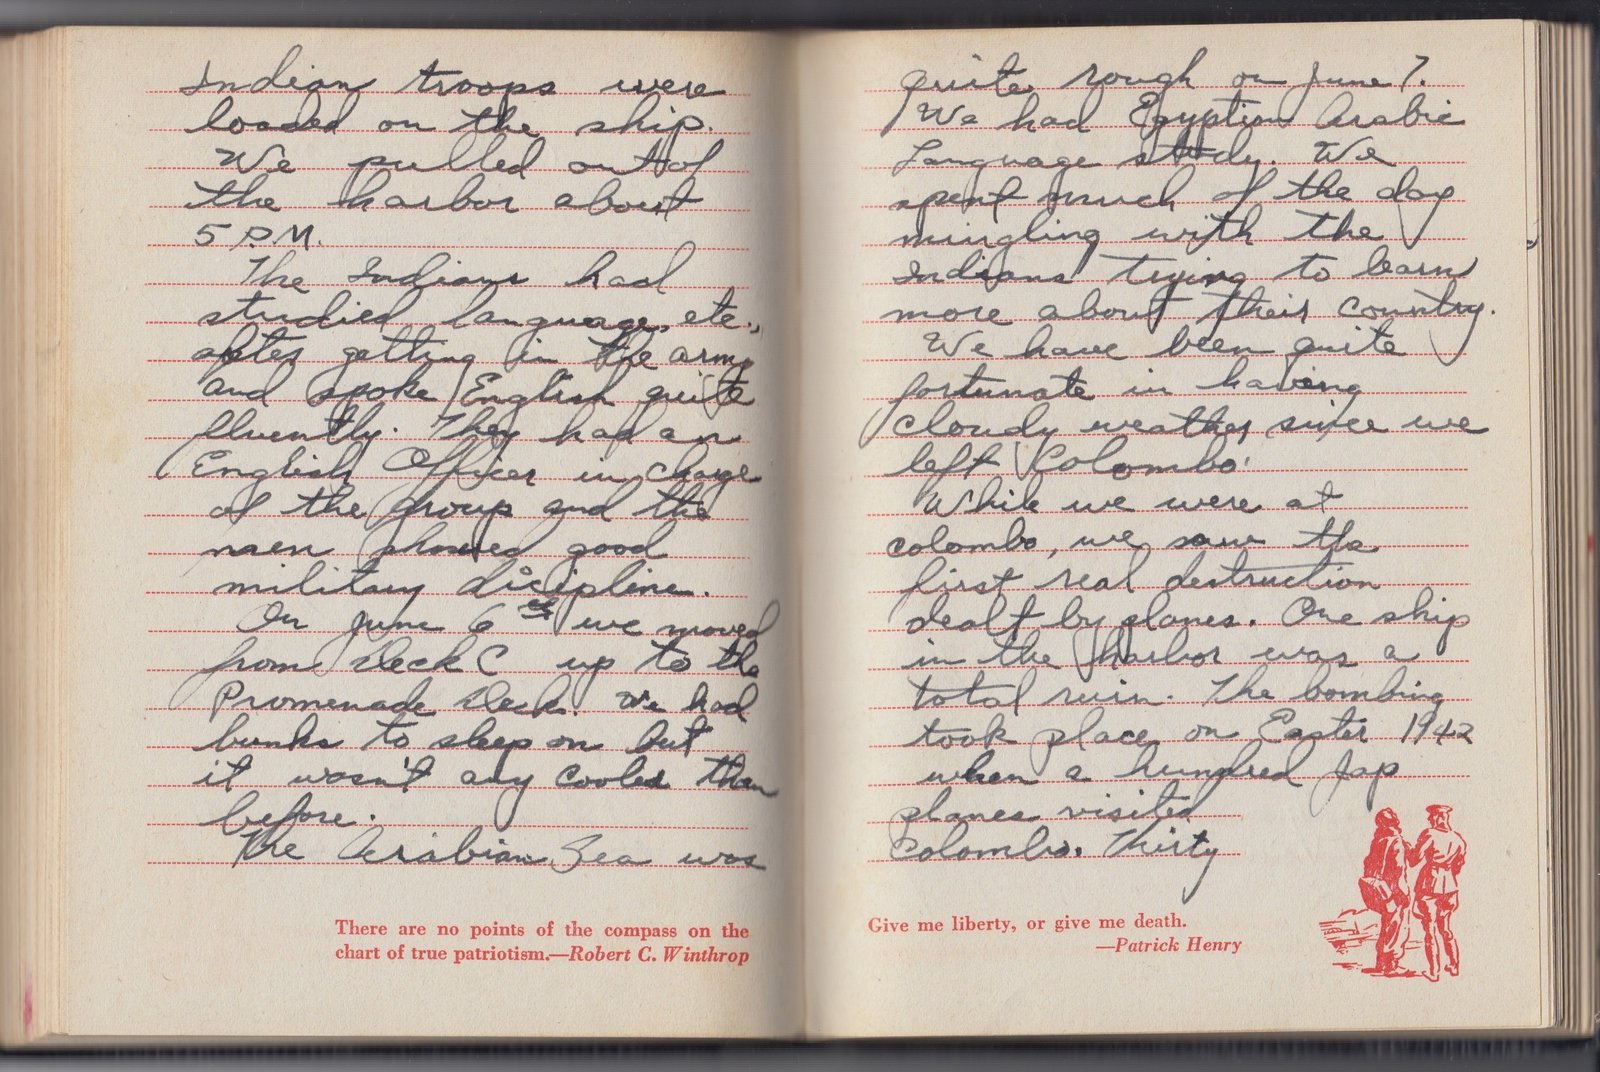 Indian troops were
loaded on the ship.
We pulled out of
the harbor about
5 P.M.
The Indians had
studied language, etc.,
after getting in the army
and spoke English quite
fluently. They had an
English Officer in charge
of the group and the
men showed good
military discipline.
On June 6th we moved
from Deck C up to the
Promenade Deck. We had
bunks to sleep on but
it wasn't any cooler than
before.
The Arabian Sea was
There are no points of the compass on the
chart of true patriotism.—Robert C. Winthrop
quite rough on June 7.
We had Egyptian Arabic
Language study. We
spent much of the day
mingling with the
Indians trying to learn
more about their country.
We have been quite
fortunate in having
cloudy weather since we
left Colombo.
While we were at
Colombo, we saw the
first real destruction
dealt by planes. One ship
in the harbor was a
total ruin. The bombing
took place on Easter 1942
when a hundred Jap
planes visited
Colombo. Thirty
Give me liberty, or give me death.
—Patrick Henry